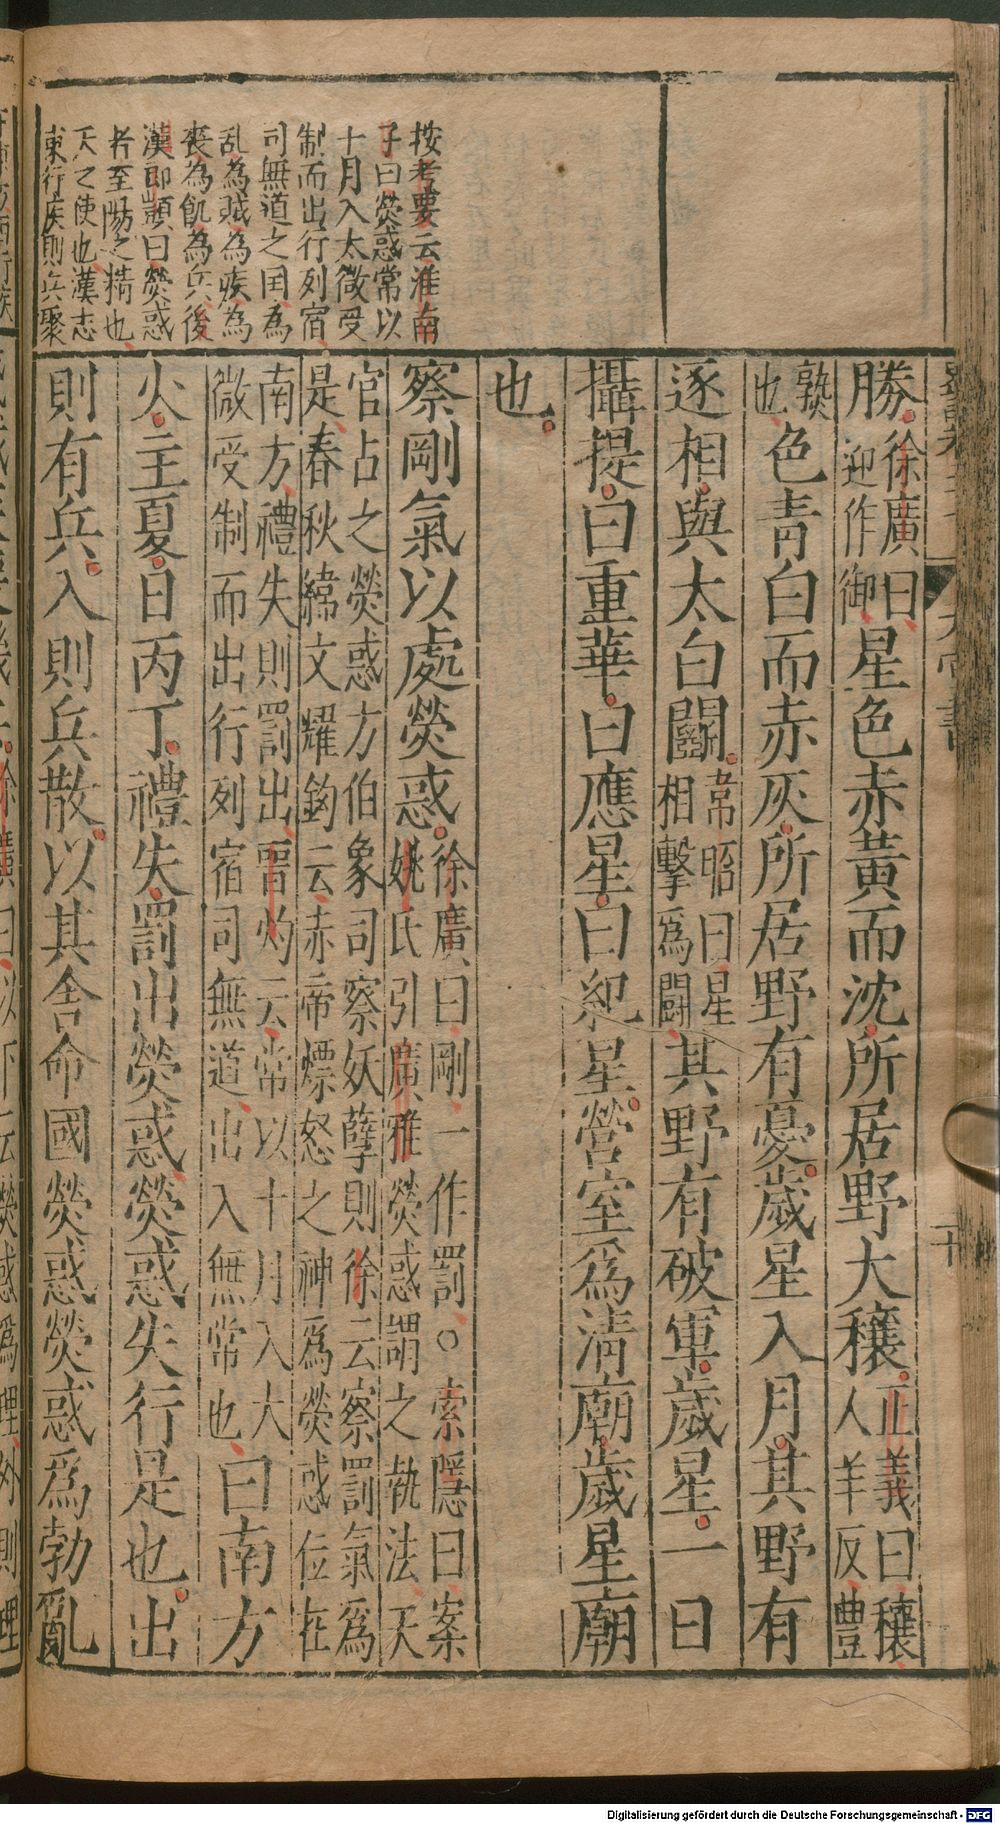 勝徐廣曰迎作御星色赤黃而沈所居野大穰正義曰穰人羊反豐
熟也色青白而赤灰所居野有憂歲星入月其野有
逐相與太白鬬韋昭曰星相擊爲鬬其野有破軍歲星一曰
攝提曰重華曰應星曰紀星營室爲清廟歲星廟
也
察剛氣以處熒惑徐廣曰剛一作罰○索隱曰案姚氏引廣雅熒惑謂之執法天
官占之熒惑方伯象司察妖孽則徐云察罰氣爲是春秋緯文耀鉤云赤帝熛怒之神爲熒惑位在
南方禮失則罰出晉灼云常以十月入大微受制而出行列宿司無道出入無常也曰南方
火主夏日丙丁禮失罰出熒惑熒惑失行是也出
則有兵入則兵散以其舍命國熒惑熒惑爲勃亂
按考要云淮南
子曰熒惑常以
十月入太微受
制而出行列宿
司無道之国為
乱為賊為疾為
喪為飢為兵後
漢郎顗曰熒惑
者至陽之精也
天之使也漢志
東行疾則兵聚
天官書
十
Digitalisierung gefördert durch die Deutsche Forschungsgemeinschaft - DFG